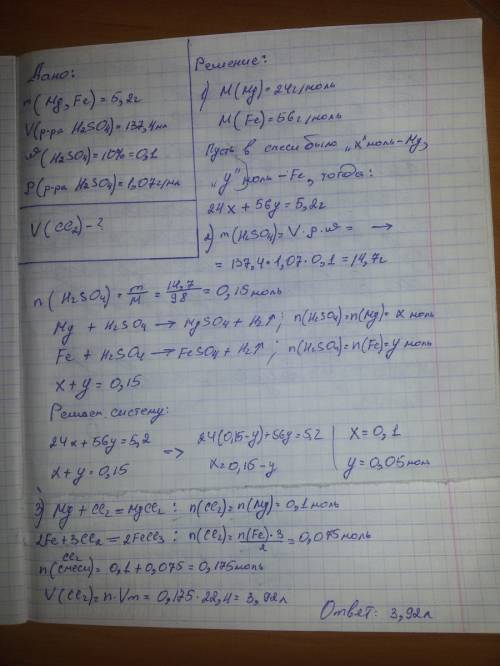 Дано:
m(Mg, Fe) = 5,2г
V(р-ра H₂SO₄) = 137,4мл
ω(H₂SO₄) = 10% = 0,1
ρ(р-ра H₂SO₄) = 1,07г/мл
V(Cl₂) - ?
Решение:
1) M(Mg) = 24г/моль
M(Fe) = 56г/моль
Пусть в смеси было „x" моль - Mg,
„y" моль - Fe, тогда:
24x + 56y = 5,2г
2) m(H₂SO₄) = V · ρ · ω = →
= 137,4 · 1,07 · 0,1 = 14,7г
n(H₂SO₄) = m/M = 14,7/98 = 0,15 моль
Mg + H₂SO₄ → MgSO₄ + H₂↑; n(H₂SO₄) = n(Mg) = x моль
Fe + H₂SO₄ → FeSO₄ + H₂↑; n(H₂SO₄) = n(Fe) = y моль
x + y = 0,15
Решаем систему:
24x + 56y = 5,2 => 24(0,15-y) + 56y = 5,2 | x = 0,1
x + y = 0,15 x = 0,15 - y | y = 0,05 моль
3) Mg + Cl₂ = MgCl₂: n(Cl₂) = n(Mg) = 0,1 моль
2Fe + 3Cl₂ = 2FeCl₃: n(Cl₂) = n(Fe)·3/2 = 0,075 моль
Cl₂
n(смеси) = 0,1 + 0,075 = 0,175 моль
V(Cl₂) = n · Vm = 0,175 · 22,4 = 3,92л
Ответ: 3,92л